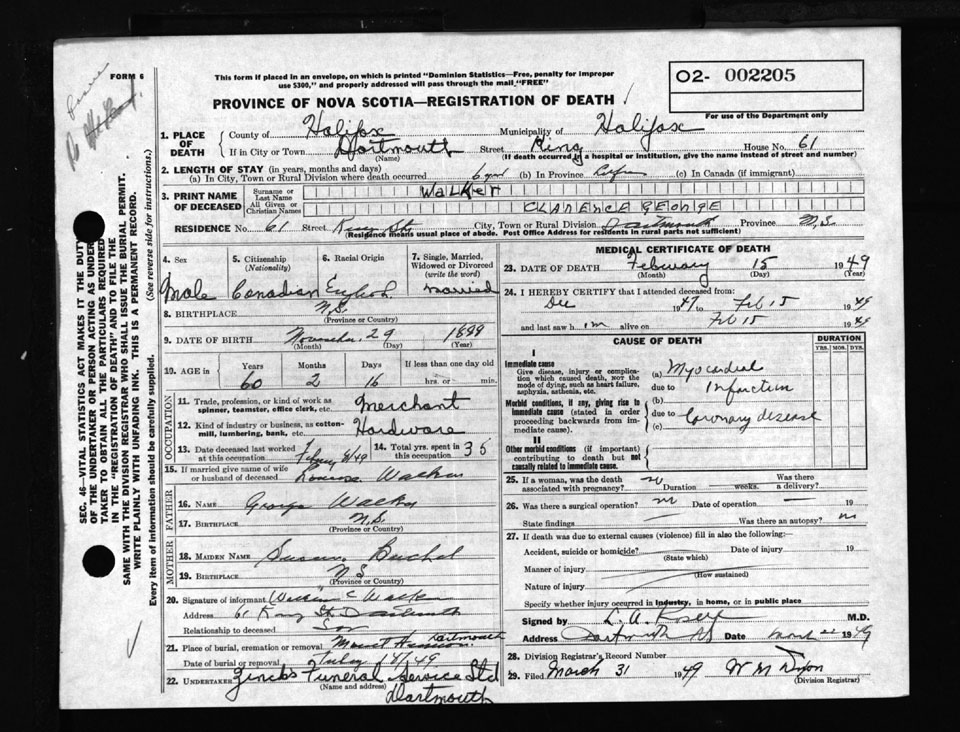 FORM 6
This form if placed in an envelope, on which is printed "Dominion Statistics—Free, penalty for improper
use $300," and properly addressed will pass through the mail "FREE"
O2- 002205
For use of the Department only
PROVINCE OF NOVA SCOTIA—REGISTRATION OF DEATH
1. PLACE OF DEATH
County of Halifax Municipality of Halifax
If in City or Town Dartmouth Street King House No. 61
(Name) (If death occurred in a hospital or institution, give the name instead of street and number)
2. LENGTH OF STAY (in years, months and days)
(a) In City, Town or Rural Division where death occurred 6 (b) In Province Life (c) In Canada (if immigrant)
3. PRINT NAME OF DECEASED
Surname or Last Name Walker
All Given or Christian Names CLARENCE GEORGE
RESIDENCE No. 61 Street King St. City, Town or Rural Division Dartmouth Province N.S.
(Residence means usual place of abode. Post Office Address for residents in rural parts not sufficient)
4. Sex Male
5. Citizenship (Nationality) Canadian
6. Racial Origin English
7. Single, Married, Widowed or Divorced (write the word) Married
8. BIRTHPLACE N.S.
(Province or Country)
9. DATE OF BIRTH November 29 1888
(Month) (Day) (Year)
10. AGE in Years Months Days If less than one day old
60 2 16 hrs. or min.
OCCUPATION
11. Trade, profession or kind of work as spinner, teamster, office clerk, etc. Merchant
12. Kind of industry or business, as cotton-mill, lumbering, bank, etc. Hardware
13. Date deceased last worked at this occupation /49
14. Total yrs. spent in this occupation 35
15. If married give name of wife or husband of deceased Walker
FATHER
16. NAME George Walker
17. BIRTHPLACE N.S.
(Province or Country)
MOTHER
18. MAIDEN NAME Susan
19. BIRTHPLACE N.S.
(Province or Country)
20. Signature of informant C Walker
Address 61 King St. Dartmouth
Relationship to deceased Son
21. Place of burial, cremation or removal Mount Hermon Dartmouth
Date of burial or removal /49
22. UNDERTAKER Zincks Funeral Service Ltd
(Name and address) Dartmouth
MEDICAL CERTIFICATE OF DEATH
23. DATE OF DEATH February 15 1949
(Month) (Day) (Year)
24. I HEREBY CERTIFY that I attended deceased from:
Dec 1947 to Feb 15 1949
and last saw h im alive on Feb 15 1949
CAUSE OF DEATH
DURATION
YRS. MOS. DYS.
I
Immediate cause
Give disease, injury or complication which caused death, NOT the mode of dying, such as heart failure, asphyxia, asthenia, etc.
(a) Myocardial
due to Infarction
Morbid conditions, if any, giving rise to immediate cause (stated in order proceeding backwards from immediate cause).
(b)
due to Coronary disease
(c)
II
Other morbid conditions (if important) contributing to death but not causally related to immediate cause.
25. If a woman, was the death associated with pregnancy? no Duration weeks. Was there a delivery?
26. Was there a surgical operation? no Date of operation 19
State findings Was there an autopsy? no
27. If death was due to external causes (violence) fill in also the following:
Accident, suicide or homicide? Date of injury 19
(State which)
Manner of injury
(How sustained)
Nature of injury
Specify whether injury occurred in industry, in home, or in public place
Signed by L. A. M.D.
Address Dartmouth NS Date March 22 1949
28. Division Registrar's Record Number
29. Filed March 31 1949 W M Dixon
(Division Registrar)
SEC. 46—VITAL STATISTICS ACT MAKES IT THE DUTY
OF THE UNDERTAKER OR PERSON ACTING AS UNDER-
TAKER TO OBTAIN ALL THE PARTICULARS REQUIRED
IN THE "REGISTRATION OF DEATH" AND TO FILE THE
SAME WITH THE DIVISION REGISTRAR WHO SHALL ISSUE THE BURIAL PERMIT.
WRITE PLAINLY WITH UNFADING INK. THIS IS A PERMANENT RECORD.
Every item of information should be carefully supplied. (See reverse side for instructions.)